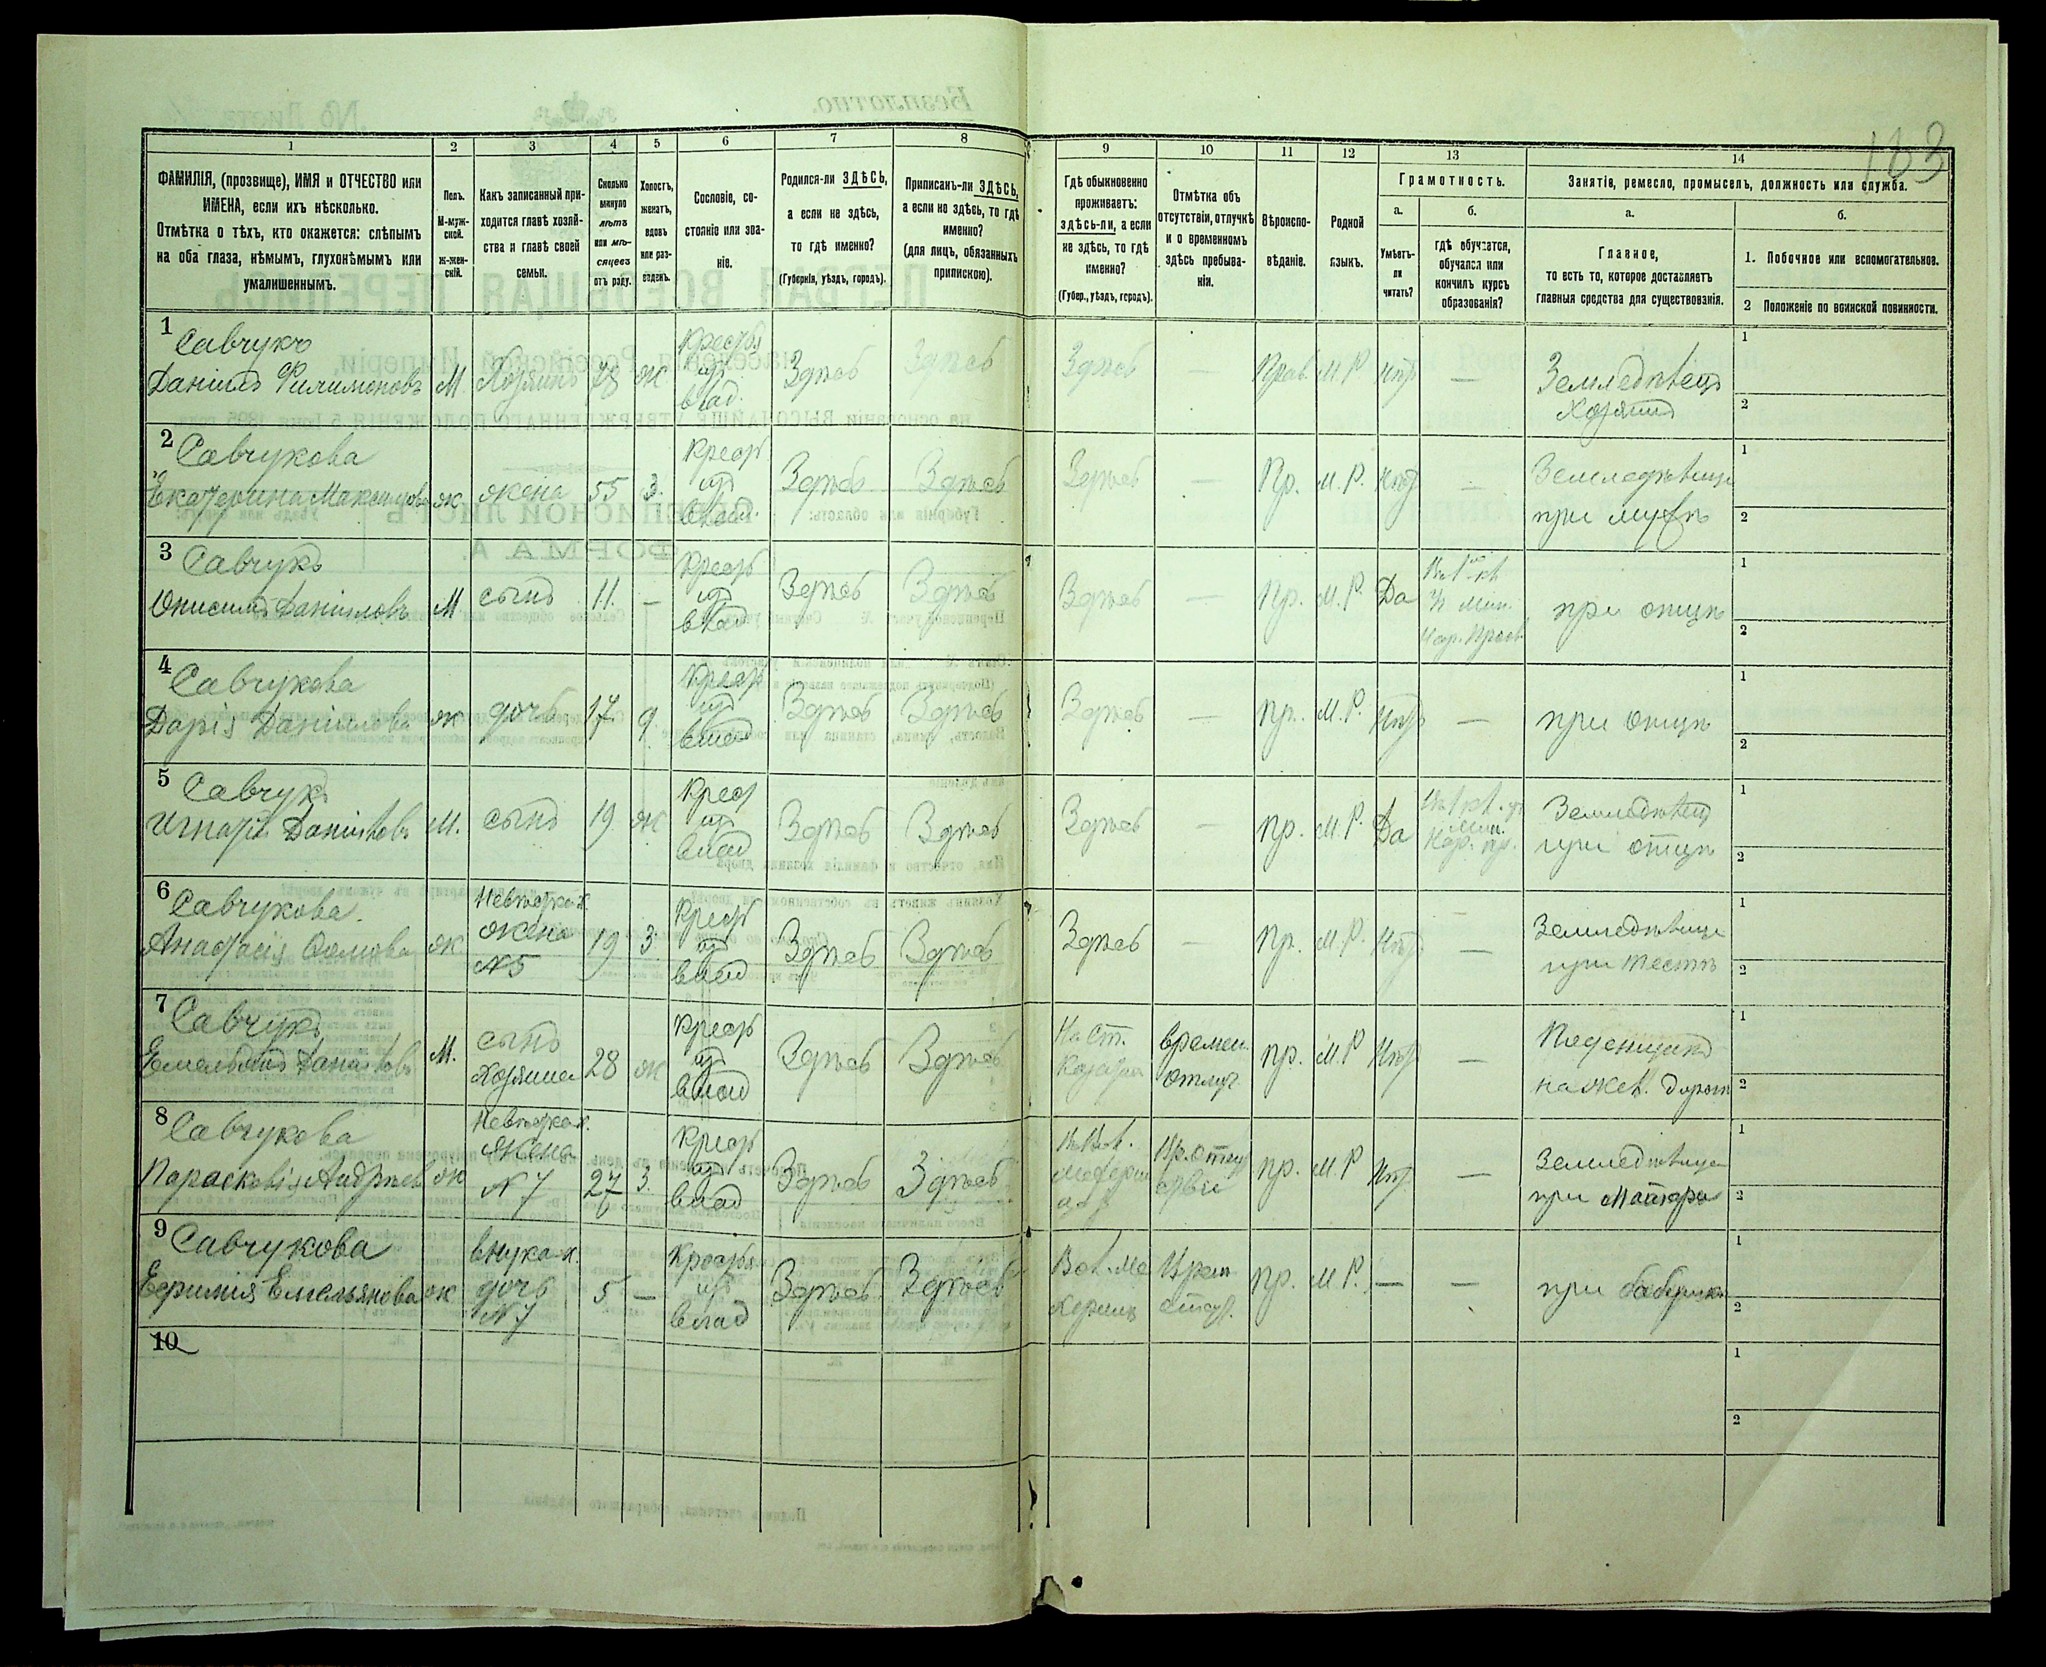 183
1 2 3 4 5 6 7 8 9 10 11 12 13 14
ФАМИЛІЯ, (прозвище), ИМЯ и ОТЧЕСТВО или
ИМЕНА, если ихъ нѣсколько.
Отмѣтка о тѣхъ, кто окажется: слѣпымъ
на оба глаза, нѣмымъ, глухонѣмымъ или
умалишеннымъ.
Полъ.
М-муж-
ской.
Ж-жен-
скій.
Какъ записанный при-
ходится главѣ хозяй-
ства и главѣ своей
семьи.
Сколько
минуло
лѣтъ
или мѣ-
сяцевъ
отъ роду.
Холостъ,
женатъ,
вдовъ
или раз-
веденъ.
Сословіе, со-
стояніе или зва-
ніе.
Родился-ли ЗДѢСЬ,
а если не здѣсь,
то гдѣ именно?
(Губернія, уѣздъ, городъ).
Приписанъ-ли ЗДѢСЬ,
а если не здѣсь, то гдѣ
именно?
(для лицъ, обязанныхъ
припискою).
Гдѣ обыкновенно
проживаетъ:
здѣсь-ли, а если
не здѣсь, то гдѣ
именно?
(Губер., уѣздъ, городъ).
Отмѣтка объ
отсутствіи, отлучкѣ
и о временномъ
здѣсь пребыва-
ніи.
Вѣроиспо-
вѣданіе.
Родной
языкъ.
Грамотность.
а.
Умѣетъ-
ли
читать?
б.
гдѣ обучается,
обучался или
кончилъ курсъ
образованія?
Занятія, ремесло, промыселъ, должность или служба.
а.
Главное,
то есть то, которое доставляетъ
главныя средства для существованія.
б.
1. Побочное или вспомогательное.
2 Положеніе по воинской повинности.
1 Савчукъ
Даніилъ Филимоновъ М. Хозяинъ 78 ж Крестья изъ влад. Здѣсь Здѣсь Здѣсь — Прав М.Р. Нѣтъ — Земледѣлецъ
Хозяинъ
1
2
2 Савчукова
Екатерина ж жена 55 З. Крест изъ влад. Здѣсь Здѣсь Здѣсь — Пр. М.Р. Нѣтъ — Земледѣлица
при мужѣ
1
2
3 Савчукъ
Онисимъ Даніиловъ М сынъ 11. — Крест изъ влад Здѣсь Здѣсь Здѣсь — Пр. М.Р. Да
Мин.
Нар. Просв.
при отцѣ
1
2
4 Савчукова
Дарія Даніилова ж дочь 17 д. Крест изъ влад Здѣсь Здѣсь Здѣсь — Пр. М.Р. Нѣтъ — при отцѣ
1
2
5 Савчукъ
Игнатій Даніиловъ М. сынъ 19 ж Крест изъ влад Здѣсь Здѣсь Здѣсь — Пр. М.Р. Да
Мин.
Нар. пр.
Земледѣлецъ
при отцѣ
1
2
6 Савчукова.
Анастасія ж Невѣстка х. жена №5 19 З. Крест изъ влад Здѣсь Здѣсь Здѣсь — Пр. М.Р. Нѣтъ — Земледѣлица
при тестѣ
1
2
7 Савчукъ
Емельянъ Даніиловъ М. сынъ Хозяина 28 ж Крест изъ влад Здѣсь Здѣсь На ст. Казатин Времен. отлуч. Пр. М.Р. Нѣтъ — Поденщикъ
на жел. дорогѣ
1
2
8 Савчукова
Параскевія Андреев ж Невѣстка х. жена №7 27 З. Крест изъ влад Здѣсь Здѣсь Пр. М.Р. Нѣтъ — Земледѣлица
при Матери
1
2
9 Савчукова
Евфимія Емельянова ж внука х. дочь №7 5 — Крестья изъ влад Здѣсь Здѣсь Пр. М.Р. — — при бабушкѣ
1
2
10
1
2